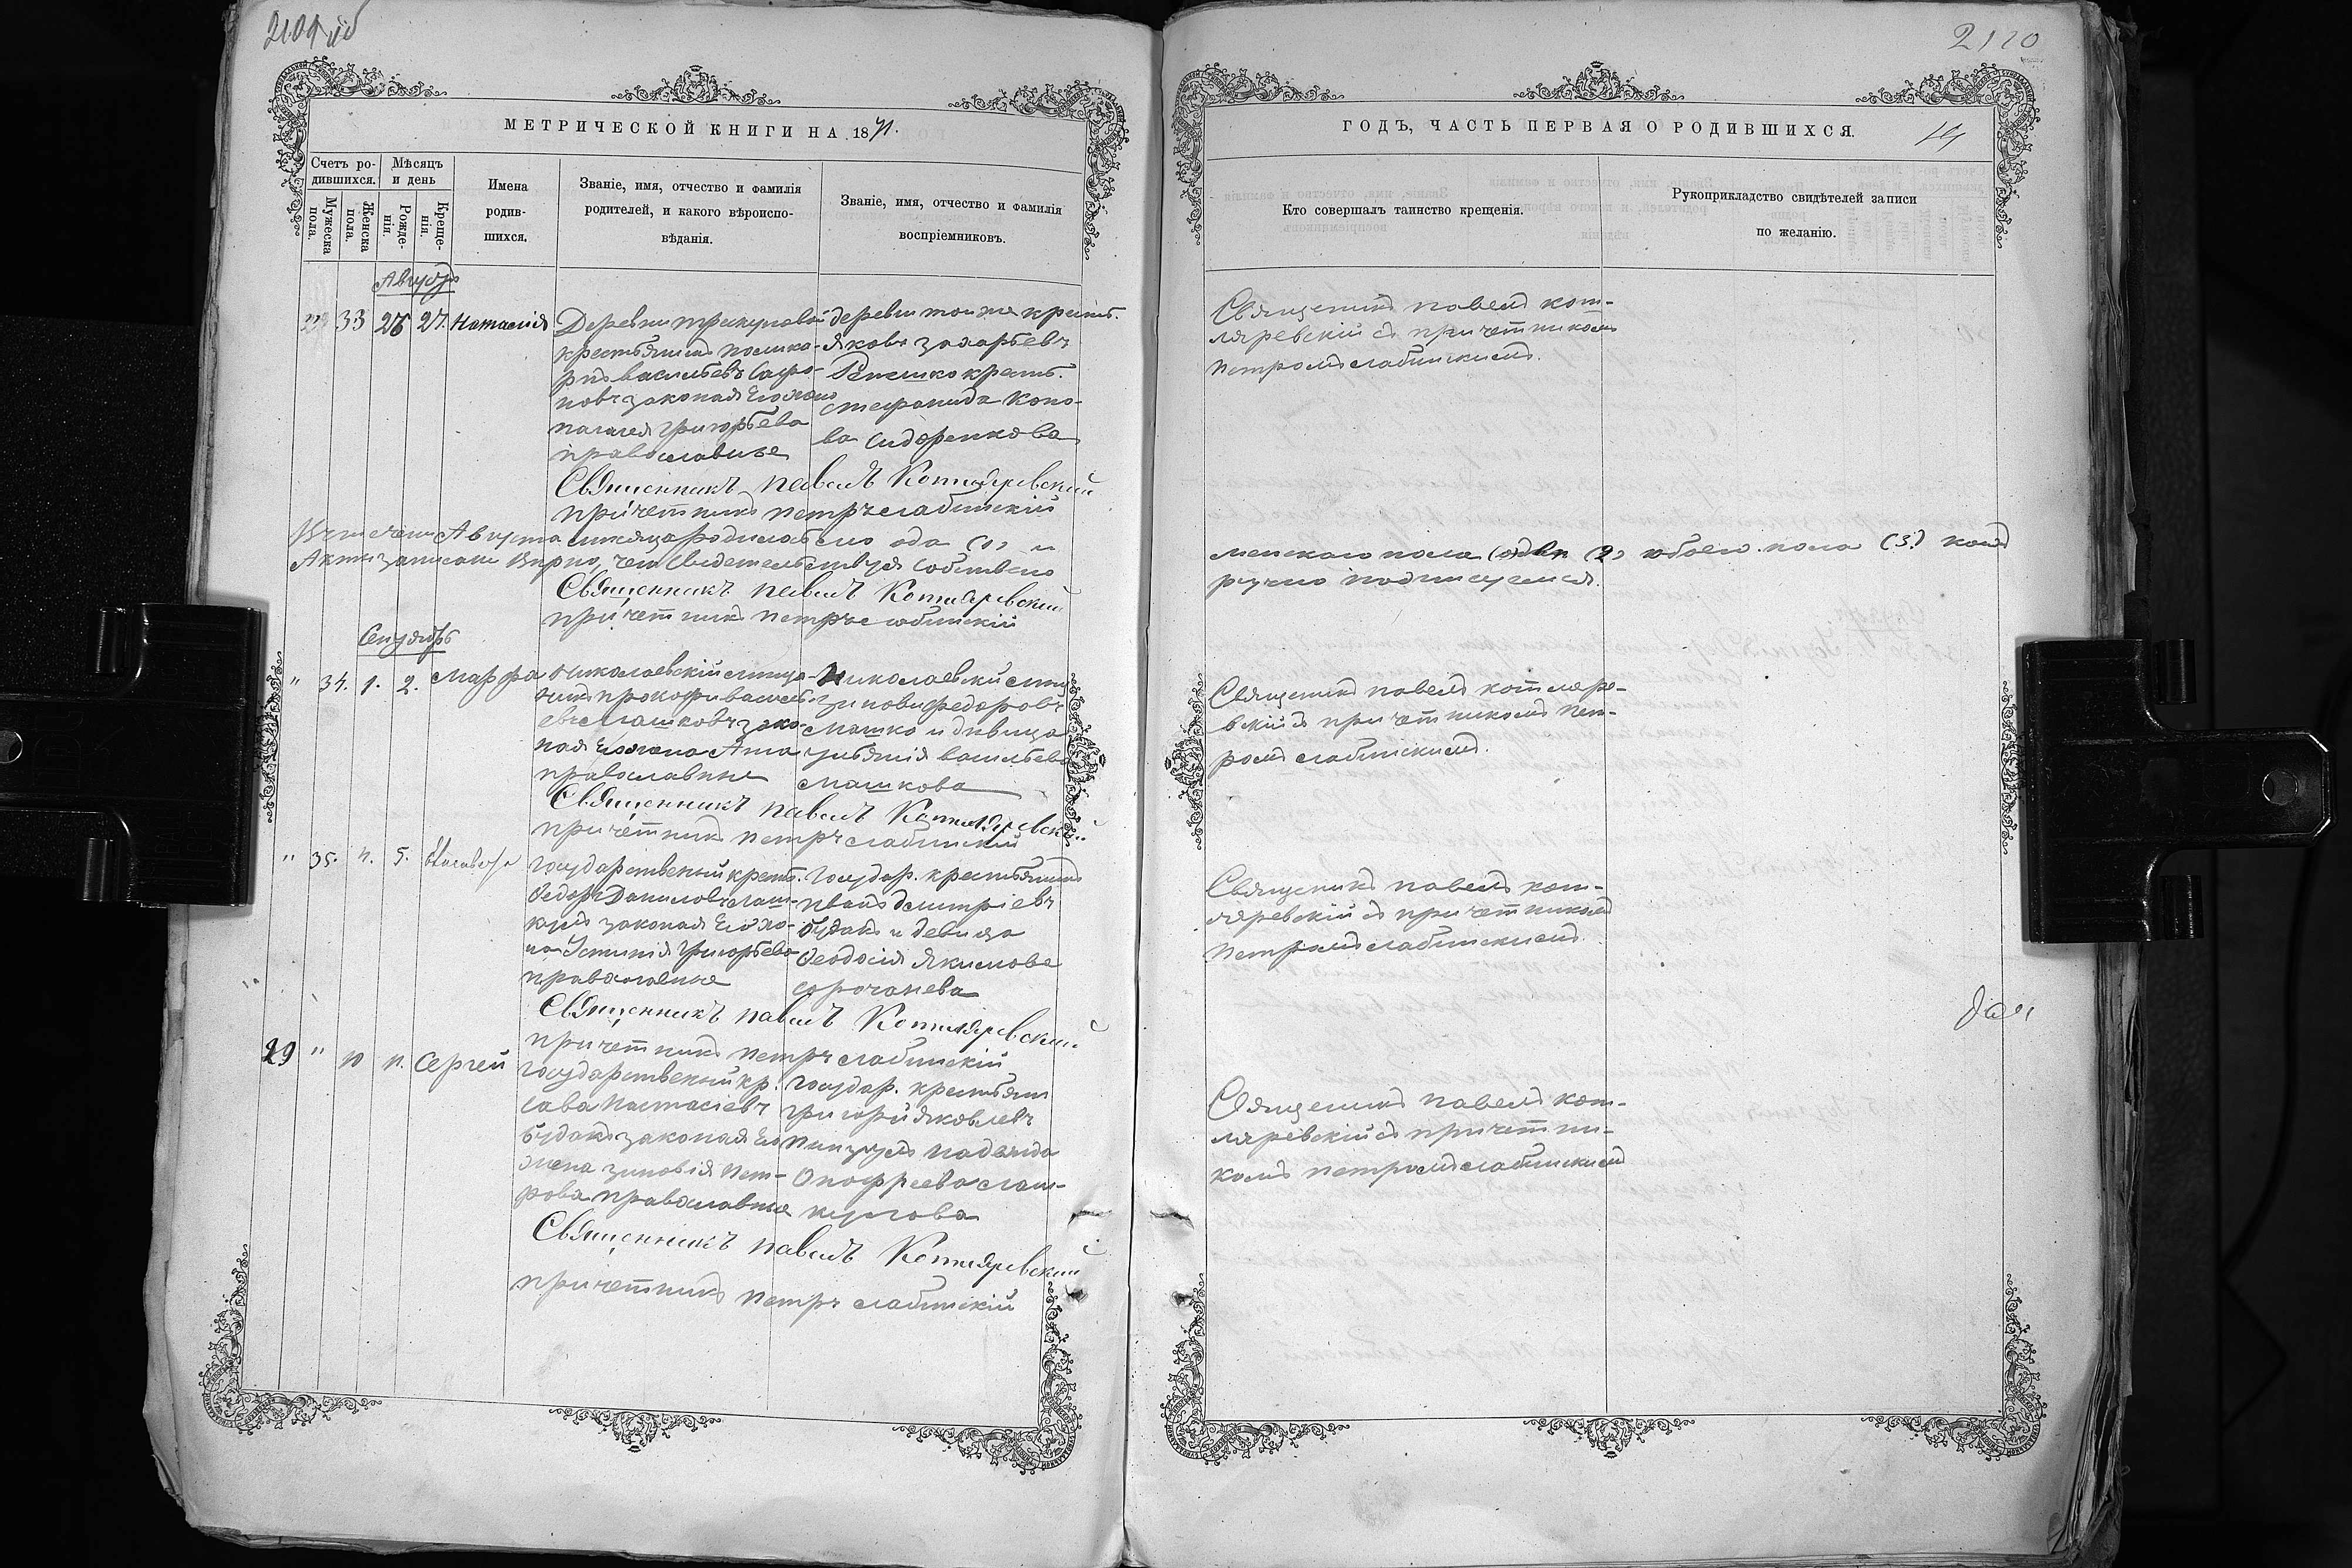 2109 об
МЕТРИЧЕСКОЙ КНИГИ НА 1871.
Счетъ ро-
дившихся.
Мужеска пола.
Женска пола.
Мѣсяцъ
и день
Рожде-
нія.
Креще-
нія.
Имена
родив-
шихся.
Званіе, имя, отчество и фамилія
родителей, и какого вѣроиспо-
вѣданія.
Званіе, имя, отчество и фамилія
воспріемниковъ.
Августъ
33 26 27. Наталія
Деревни
крестьянинъ
Васильевъ Сафо-
новъ законая Его жена
Григорьева
православные
деревни тои же крест.
Яковъ Захарьевъ
крест.
стефанида Коно-
ва Сидоренкова
Священникъ павелъ Котляревскій
причетникъ петръ слабинскій
Августа месяца родилось
Акти записани Вѣрно, чем Свидетельствуя Собствено
Священникъ павелъ Котляревскій
причетникъ петръ слабинскій
Сентябрь
" 34. 1. 2. Марфа
Николаевскій мища-
нинъ прокофи васильѣ-
евъ Машковъ зако-
ная Его жена Анна
православные
Николаевски мищ
зинови федоровъ
Машко и дивица
улияния васильева
машкова
Священникъ павелъ Котляревскій
причетникъ петръ слабинскій
" 35. 4. 5. Елисавета
государственый крест.
Федоръ Даниловъ
законая Его же-
на Устинія Григорьева
православные
Государ. крестьянинъ
иванъ дмитріевъ
будакъ и девица
Феодосія Якимова
сорочанева
Священникъ павелъ Котляревскій
причетникъ петръ слабинскій
29 " 10 11. Сергей
государственый кр.
сава Настасіевъ
Будакъ законая Его
жена зиновія пет-
рова православные
государ. крестьянин
григорій Яковлевъ
надежда
Онофреева
Священникъ павелъ Котляревскій
причетникъ петръ слабинскій
2110
ГОДЪ, ЧАСТЬ ПЕРВАЯ О РОДИВШИХСЯ.
Кто совершалъ таинство крещенія.
Рукоприкладство свидѣтелей записи
по желанію.
Священникъ павелъ кот-
ляревскій съ причетникомъ
петромъ слабинскимъ.
женскаго пола (2) обоего пола (3)
ручно подписуемся.
Священникъ павелъ котляре-
вскій съ причетникомъ пет-
ромъ слабинскимъ.
Священникъ павелъ кот-
ляревскій съ причетникомъ
петромъ слабинскимъ.
Священникъ павелъ кот-
ляревскій съ причетни-
комъ петромъ слабинскимъ